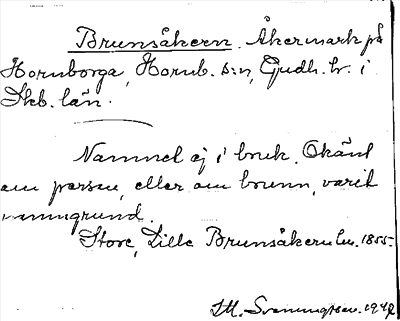 Brunsåkern. Åkermark på
Hornborga, Hornb. s:n, Gudh. hr. i
Skb. län.
Namnet ej i bruk. Okänt
om person, eller om brunn, varit
namngrund.
Store, Lille Brunsåkern lm. 1855.
M. Svenungsson. 1942